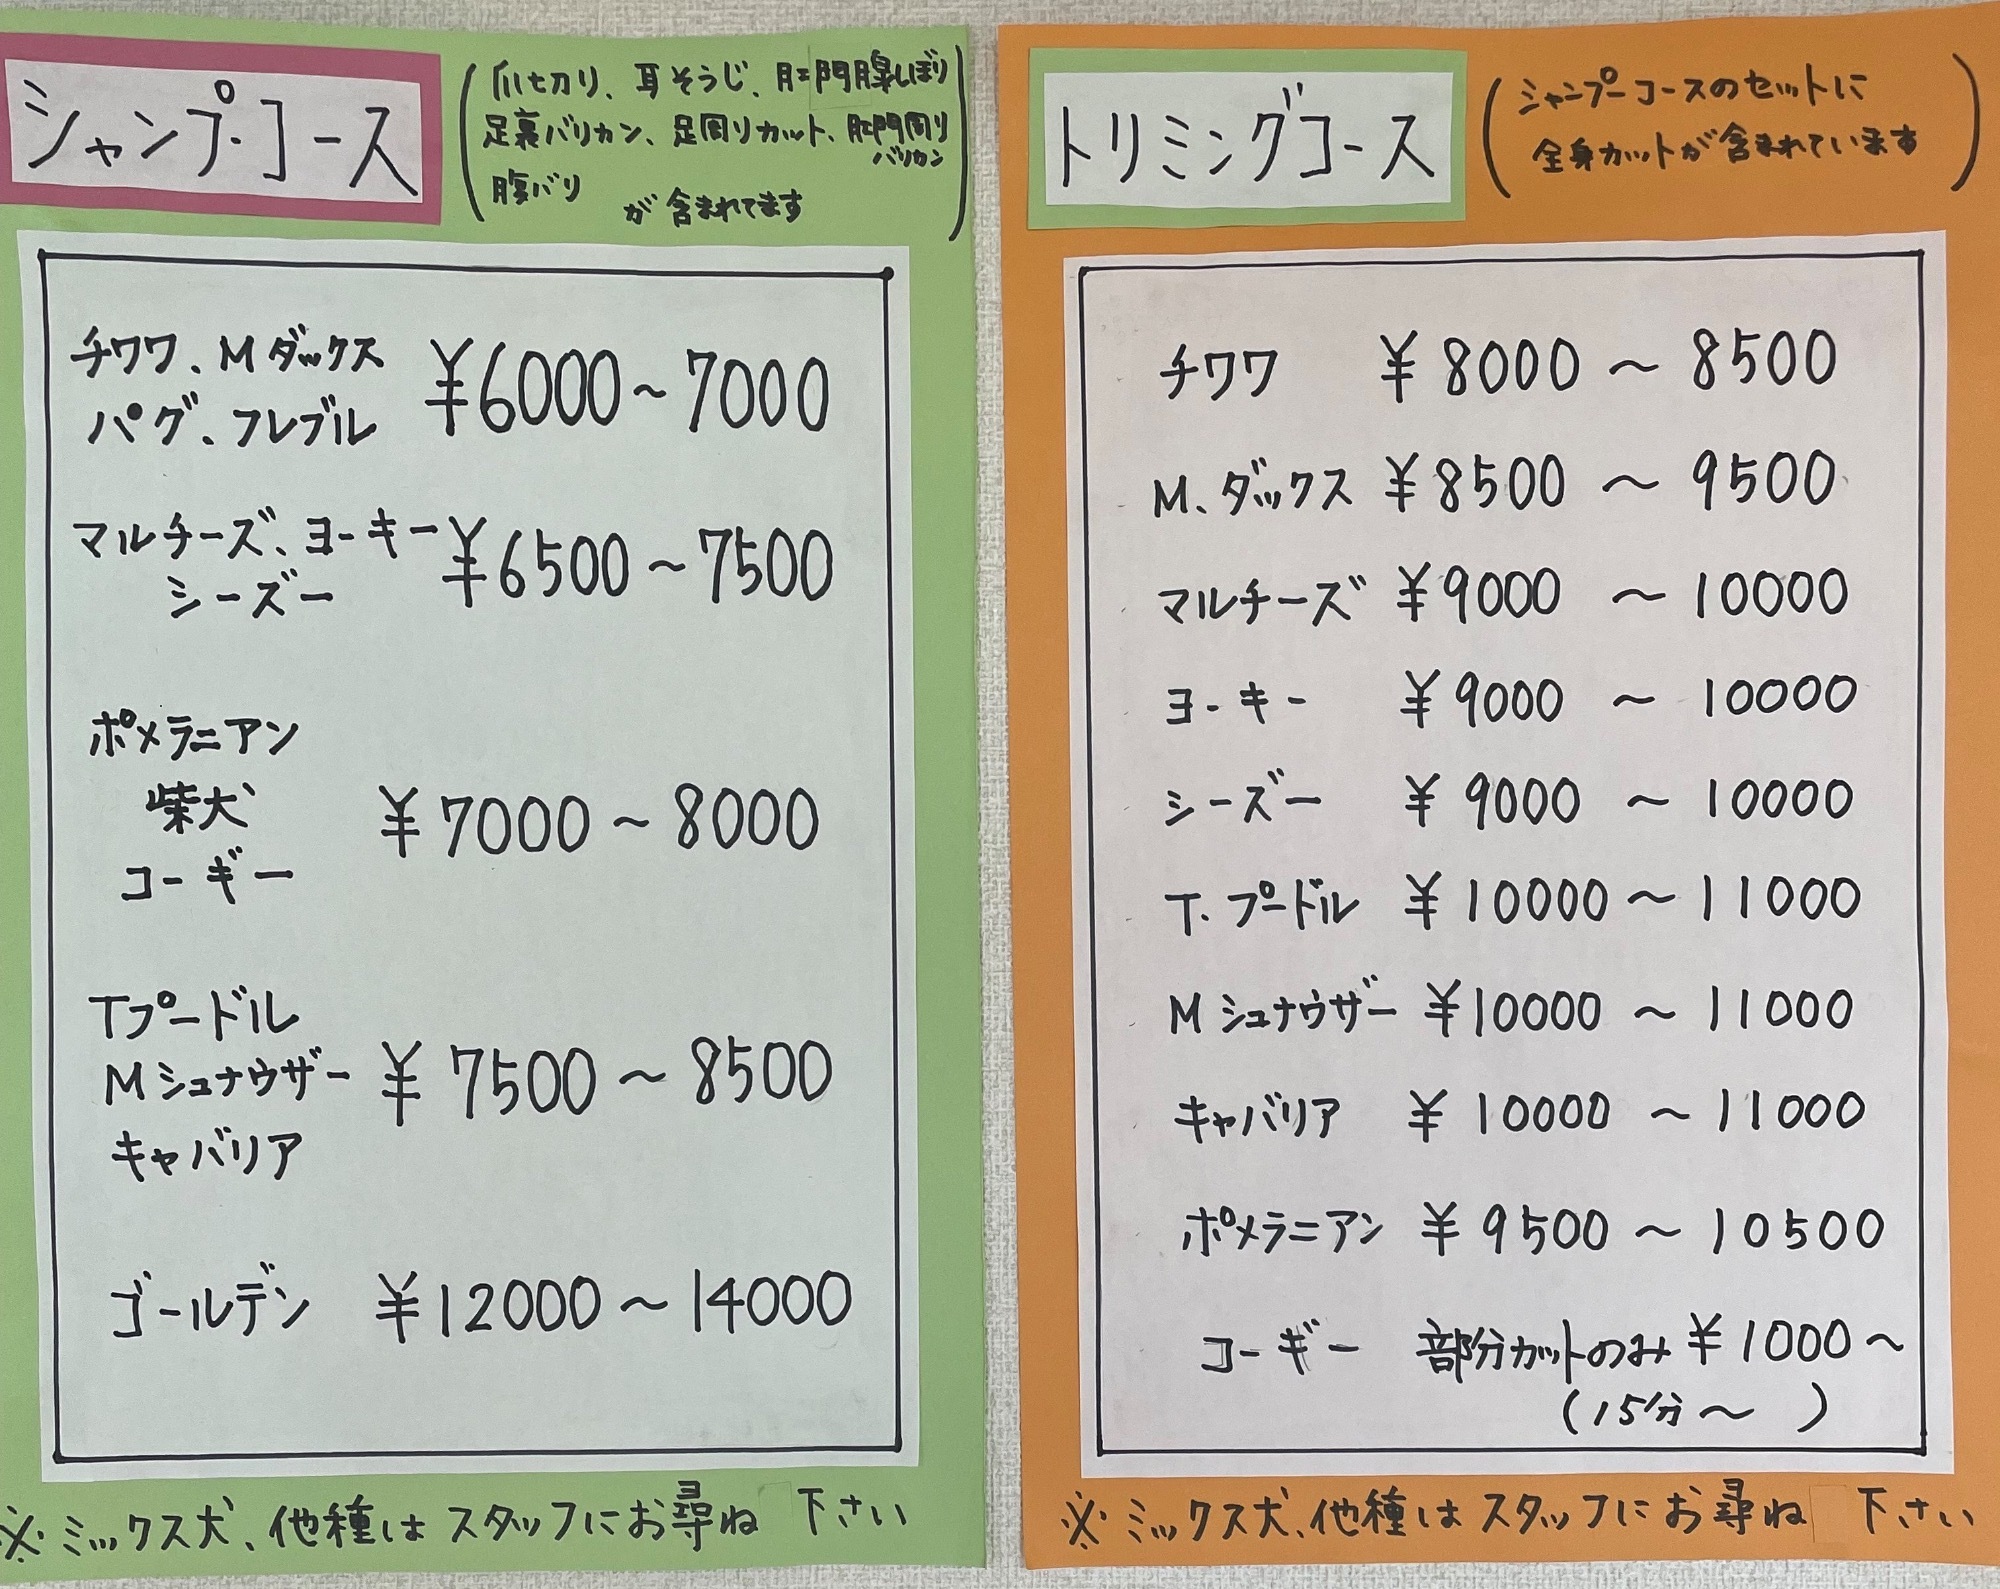 シャンプーコース
(爪切り、耳そうじ、肛門腺しぼり
足裏バリカン、足回りカット、肛門周り
バリカン
腹バリ が含まれてます)
チワワ、Mダックス
パグ、フレブル ¥6000~7000
マルチーズ、ヨーキー
シーズー ¥6500~7500
ポメラニアン
柴犬
コーギー ¥7000~8000
Tプードル
Mシュナウザー ¥7500~8500
キャバリア
ゴールデン ¥12000~14000
※ミックス犬、他種はスタッフにお尋ね下さい
トリミングコース
(シャンプーコースのセットに
全身カットが含まれています)
チワワ ¥8000~8500
M、ダックス ¥8500~9500
マルチーズ ¥9000~10000
ヨーキー ¥9000~10000
シーズー ¥9000~10000
T.プードル ¥10000~11000
Mシュナウザー ¥10000~11000
キャバリア ¥10000~11000
ポメラニアン ¥9500~10500
コーギー 部分カットのみ ¥1000~
(15分~ )
※ミックス犬、他種はスタッフにお尋ね下さい